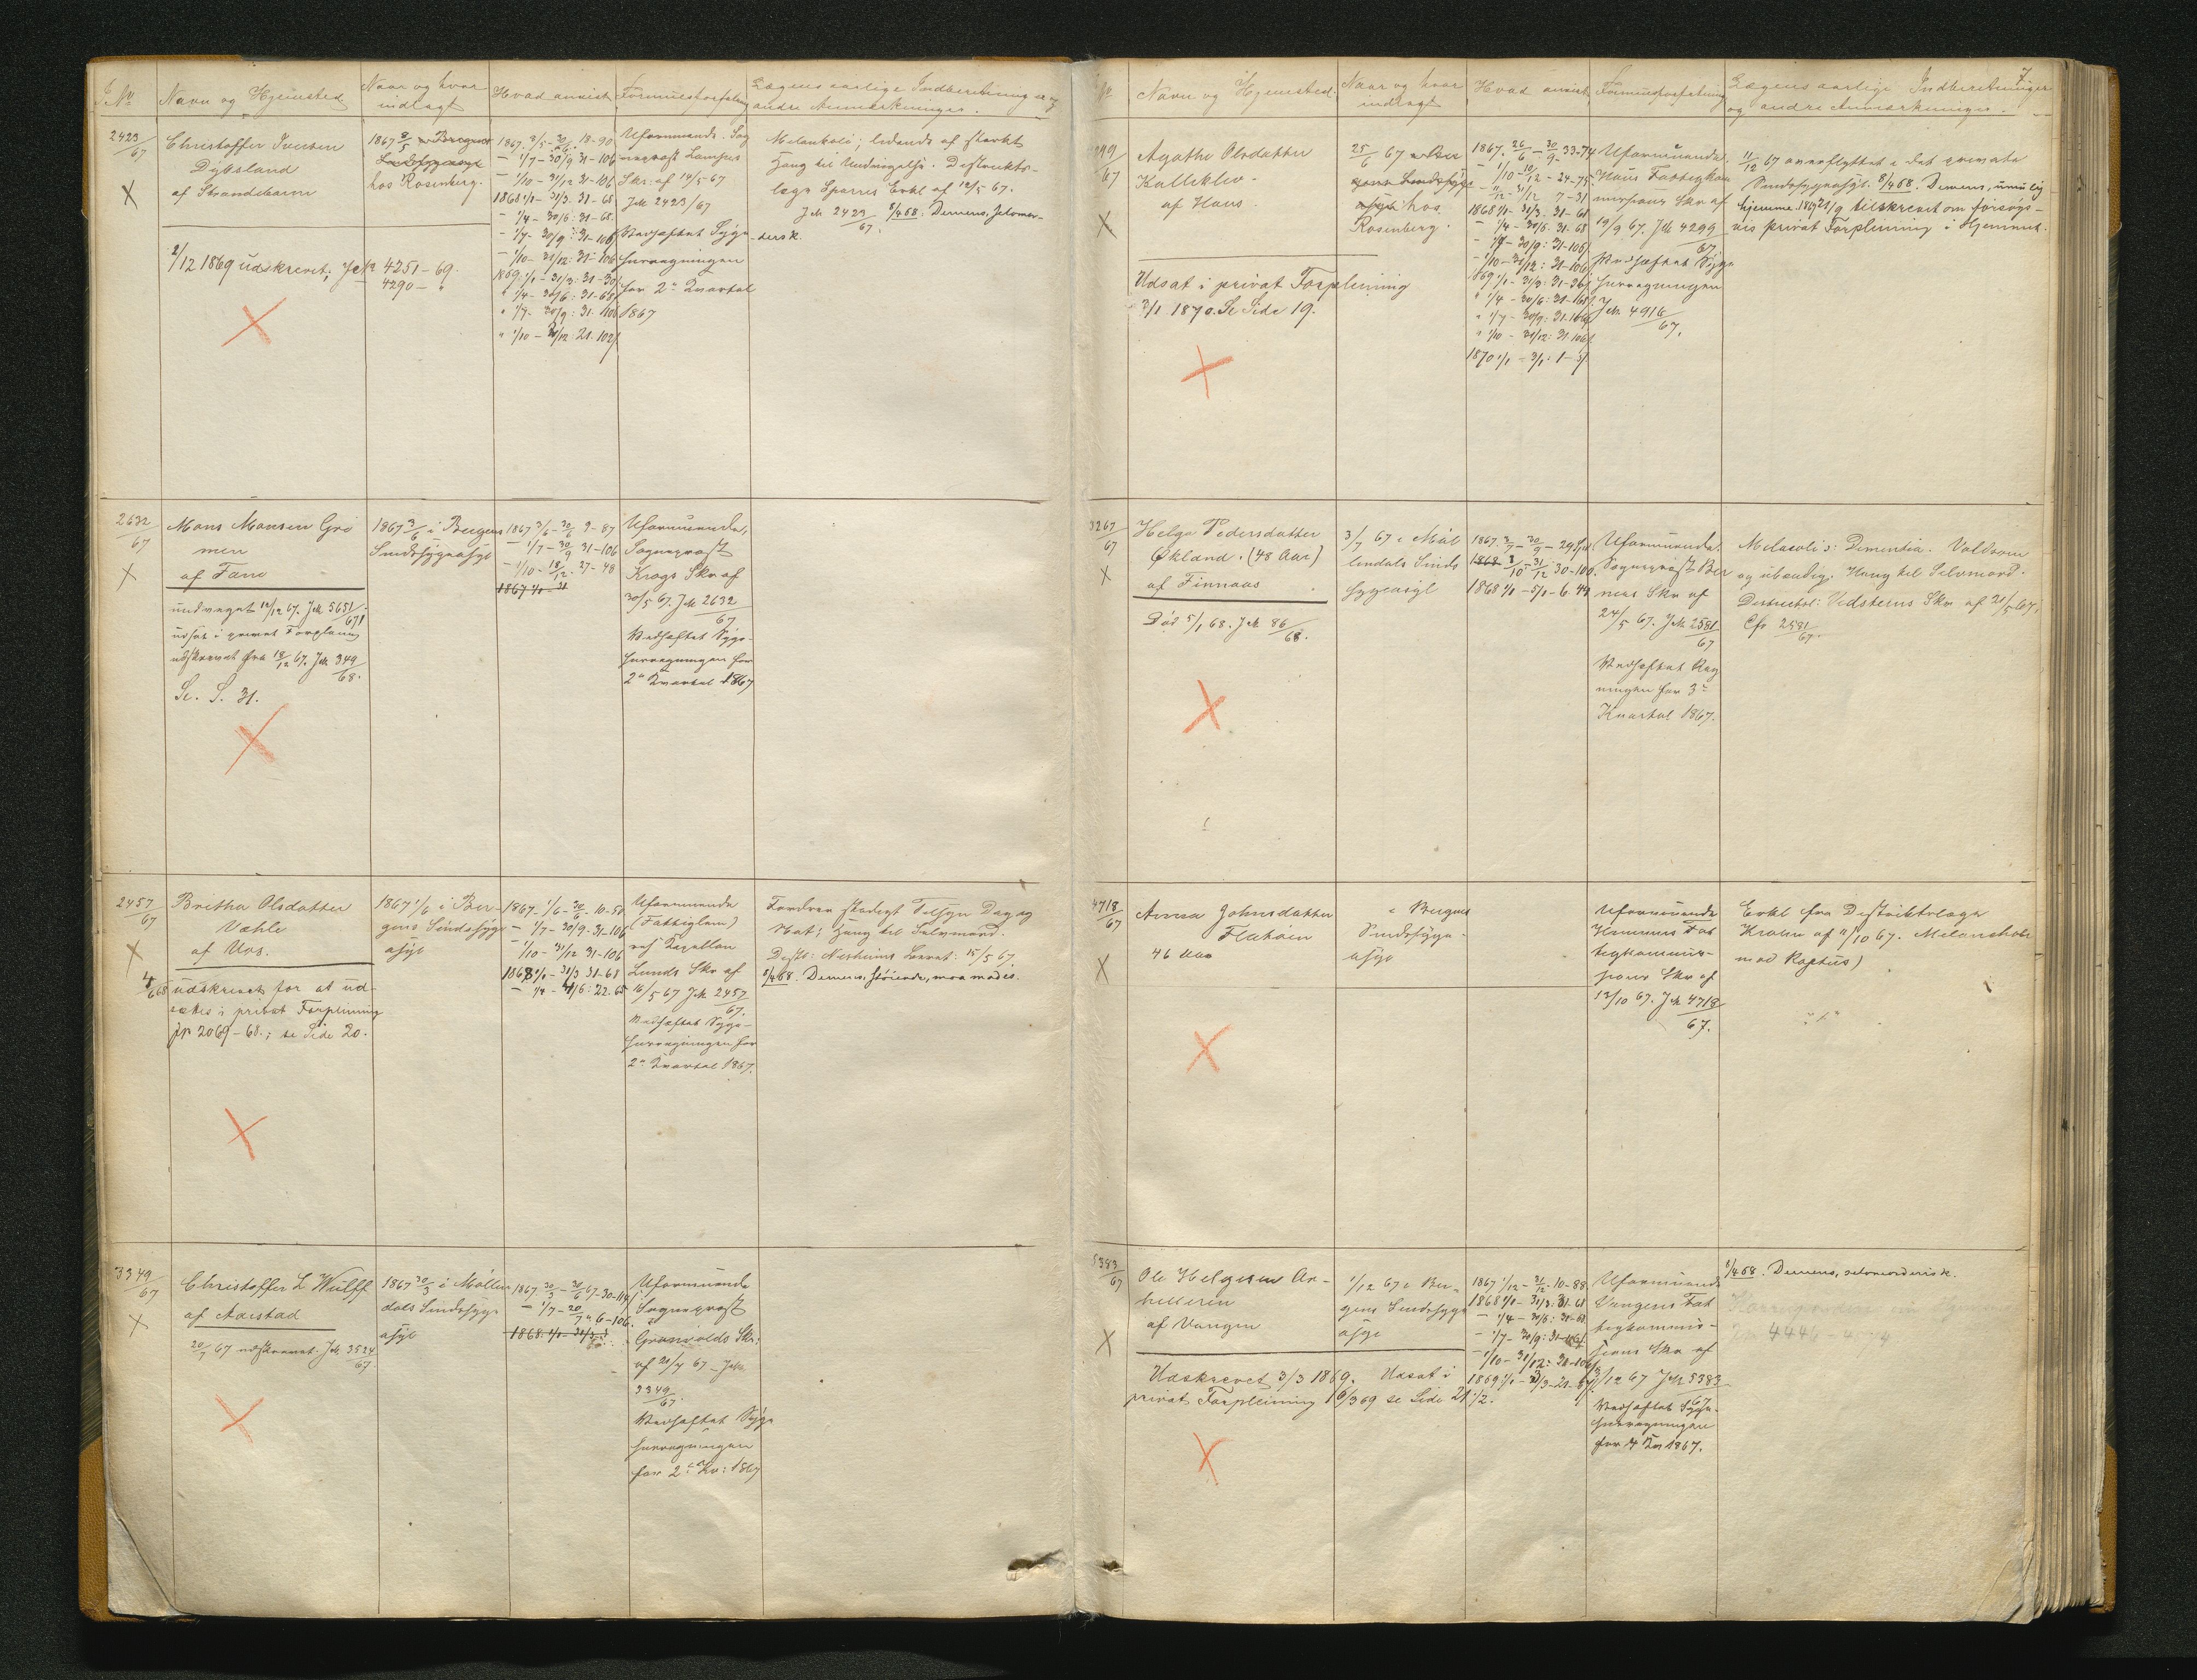 J. No
Navn og Hjemsted
Naar og hvor
indlagt
Hvad anvist
Formuesforfatning
Lægens aarlige Indberetninger og
andre Anmærkninger.
2423/67
Christoffer Iversen
Dyksland
af Strandebarm
2/12 1869 udskrevet; JNo 4251-69.
4290 - "
1867 8/5 i Bergens
Sindssygeasyl
hos Rosenberg.
1867. 8/5 - 30/6. 18-90
- 1/7 - 30/9 31-106
- 1/10 - 31/12 31-106
1868 1/1 - 31/3. 31-68
- 1/4 - 30/6. 31-68.
- 1/7 - 30/9: 31-106
- 1/10 - 31/12: 31-106
1869: 1/1 - 31/3: 31-30
" 1/4 - 30/6: 31-68
" 1/7 - 30/9: 31-106
" 1/10 - 31/12: 21-102
Uformuende. Sog
neprest Lampes
Skr. af 14/5-67
JNo 2423/67
Vedhæftet Syge-
husregningen
for 2de Kvartal
1867
Melankoli; lidende af stærkt
Hang til Undvigelse. Distrikts-
læge Sparres Erkl af 12/5 67.
JNo 2423/67. 8/4 68. Demens, selvmor-
dersk.
2632/67
Mons Monsen Gri
men
af Fane
undveget 14/12 67. JNo 5651/67
udsat i privat Forpleining
udskrevet fra 18/12 67. JNo 349/68.
Se. S. 31.
1867 3/6 i Bergens
Sindssygeasyl
1867 3/6 - 30/6 9-87
- 1/7 - 30/9 31-106
- 1/10 - 18/12. 27-48
1867 1/1 - 31
Uformuende,
Sogneprest
Krogs Skr af
30/5 67. JNo 2632/67
Vedhæftet Syge-
husregningen for
2de Kvartal 1867
2457/67
Britha Olsdatter
Væhle
af Vos.
4/6 68 udskrevet for at ud-
sættes i privat Forpleining
jr 2069-68.; se Side 20.
1867 1/6 i Ber-
gens Sindssyge
asyl
1867. 1/6 - 30/6 - 10-50
- 1/7 - 30/9 - 31-106
- 1/10 - 31/12 31-106
1868 1/1 - 31/3 31-68
- 1/4 - 4/6: 22.65
Uformuende
(Fattiglem)
res Kapellan
Lunds Skr af
16/5 67 JNo 2457/67.
Vedhæftet Syge-
husregningen for
2de Kvartal 1867.
Fordrer stadigt Tilsyn Dag og
Nat; Hang til Selvmord.
Distr: Nesheims Besvet: 15/5 67.
8/4 68. Demens, støiende,
3349/67
Christoffer L Wulff
af Aarstad
20/7 67 udskrevet. JNo 3524/67
1867 30/3 i Møllen
dals Sindssyge
asyl
1867 30/3 - 30/6 67-30-114
- 1/7 - 20/7 " 6-106.
1868. 1/1 - 31/3
Uformuende
Sogneprest
Grønvolds Skr:
af 20/7 67 - JNo
3349/67.
Vedhæftet Syge
husregningen
for 2de Kv: 1867
7
No
Navn og Hjemsted.
Naar og hvor
indlagt
Hvad anvist
Formuesforfatning
Lægens aarlige Indberetninger
og andre Anmærkninger.
Agathe Olsdatter
Kalleklev
af Haus.
Udsat i privat Forpleining
3/1 1870. Se Side 19.
25/6 67 i Ber
gens Sindssyge
asyl hos
Rosenberg.
1867. 26/6 - 30/9 - 33-74
- 1/10 - 10/12 - 24-75
- 11/12 - 31/12 7-31
1868 1/1 - 31/3. 31-68
- 1/4 - 30/6. 31-68
- 1/7 - 30/9: 31-106
- 1/10 - 31/12: 31-106
1869 1/1 - 31/3: 31-36
" 1/4 - 30/6: 31-68
" 1/7 - 30/9: 31-106
" 1/10 - 31/12: 31-106
1870 1/1 - 3/1: 1-5
Uformuende.
Haus Fattigkom
missions Skr af
19/9 67. JNo 4299/67
Vedhæftet Syge
husregningen
JNo 4916/67.
11/12 67 overflyttet i det private
Sindssygeasyl. 8/4 68. Demens, umulig
hjemme. 1869 21/9 tilskrevet om forsøgs-
vis privat Forpleining i Hjemmet.
3267/67
Helga Pedersdatter
Økland. (48 Aar)
af Finnaas
Død 5/1 68. JNo 86/68.
3/7 67 i Møl
lendals Sinds
sygeasyl
1867. 3/7 - 30/9 - 29
1868 1/10 - 31/12 30-100.
1868 1/1 - 5/1 - 6 44
Uformuende.
Sogneprest Ber
ners Skr af
24/5 67. JNo 2581/67
Vedhæftet Reg
ningen for 3de
Kvartal 1867.
Melacoli : Dementia. Voldsom
og ubændig. Hang til Selvmord.
Districtsl: Vedelers Skr af 21/5 67.
Cfr 2581/67.
4718/67
Anna Johnsdatter
Flatøen
46 Aar
i Bergens
Sindssyge-
asyl
Uformuende
Hammers Fat
tigkommis-
sions Skr af
12/10 67. JNo 4718/67.
Erkl fra Distriktslæge
Krohn af 11/10 67. Melancholi
med Raptus)
5383/67
Ole Helgesen Ar-
hellerin
af Vangen
Udskrevet 3/3 1869. Udsat i
privat Forpleining 16/3 69 se Side 21 1/2.
1/12 67 i Ber-
gens Sindssyge
asyl
1867 1/12 - 31/12 - 10-88
1868 1/1 - 31/3. 31-68
- 1/4 - 30/6: 31-68
- 1/7 - 30/9: 31-106
- 1/10 - 31/12: 31-106
1869 1/1 - 3/3 - 21-87
Uformuende
Vangens Fat
tigkommis-
sions Skr af
3/12 67 JNo 5383/67
Vedhæftet Syge-
husregningen
for 4 Kv 1867.
8/4 68. Demens, selvmordersk.